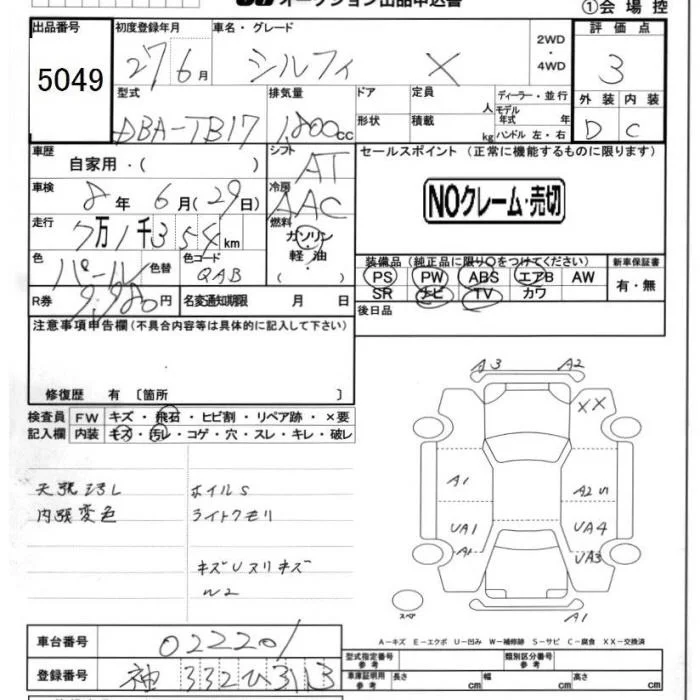 オークション出品申込書
①会場控
出品番号 初度登録年月 車名・グレード 評価点
5049 27年6月 シルフィ X 2WD・4WD 3
型式 排気量 ドア 定員 人 ディーラー・並行 外装 内装
モデル年式 年
DBA-TB17 1,800cc 形状 積載 kg ハンドル 左・右 D C
車歴 自家用・( ) シフト AT セールスポイント (正常に機能するものに限ります)
車検 8年6月(29日) 冷房 AAC
NOクレーム・売切
走行 7万1千354km 燃料 ガソリン・軽油 ( )
色 パール 色替 色コード QAB
装備品(純正品に限り○をつけてください) 新車保証書
PS PW ABS エアB AW 有・無
SR ナビ TV カワ
R券 9,980円 名変通知期限 月 日
後日品
注意事項申告欄(不具合内容等は具体的に記入して下さい)
修復歴 有 〔箇所 〕
検査員 FW キズ・飛石・ヒビ割・リペア跡・×要
記入欄 内装 キズ・汚レ・コゲ・穴・スレ・キレ・破レ
A3 A2
XX
A1 A2 S
UA1 UA4
A1 UA3
A1
スペア
ホイルS
内張変色 ライトクモリ
キズUスリキズ
W2
A-キズ E-エクボ U-凹み W-補修跡 S-サビ C-腐食 XX-交換済
車台番号 022201
型式指定番号 参考 類別区分番号 参考
登録番号 332 313
車庫証明用 参考 長さ cm 幅 cm 高さ cm